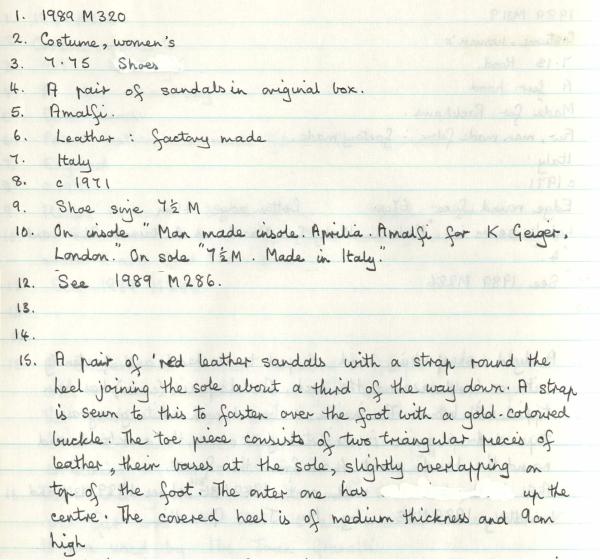 1. 1989 M320
2. Costume, women's
3. 7.75 Shoes
4. A pair of sandals in original box.
5. Amalfi.
6. Leather : factory made
7. Italy
8. c 1971
9. Shoe size 7½ M
10. On insole "Man made insole. Aprilia. Amalfi for K Geiger,
London." On sole "7½M. Made in Italy."
12. See 1989 M286.
13.
14.
15. A pair of red leather sandals with a strap round the
heel joining the sole about a third of the way down. A strap
is sewn to this to fasten over the foot with a gold-coloured
buckle. The toe piece consists of two triangular pieces of
leather, their bases at the sole, slightly overlapping on
top of the foot. The outer one has up the
centre. The covered heel is of medium thickness and 9cm
high.